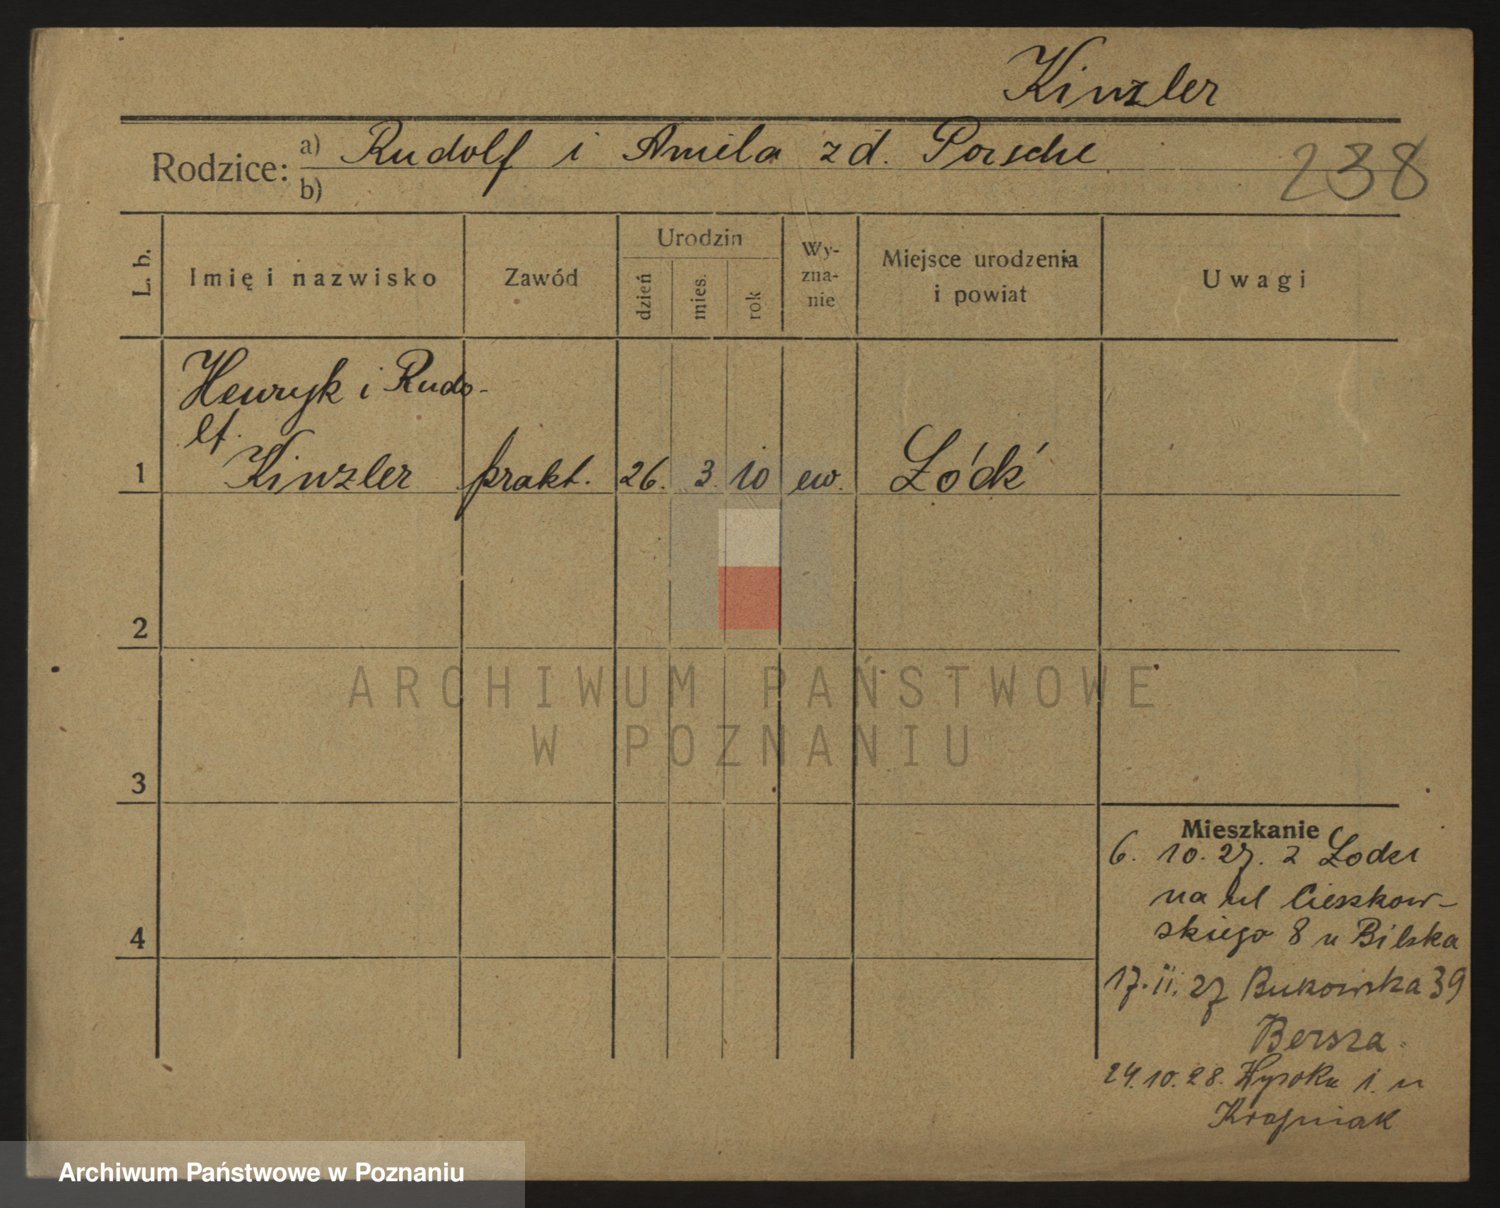 Kinzler
Rodzice: a) Rudolf i Amila z d. Porsche
b)
238
L. b.
Imię i nazwisko
Zawód
Urodzin
dzień
mies.
rok
Wy-
zna-
nie
Miejsce urodzenia
i powiat
Uwagi
Henryk i Rudo-
lf.
1 Kinzler prakt. 26. 3. 10 ew. Łódź
2
3
4
Mieszkanie
6. 10. 27. z Łodzi
na ul Cieszkow-
skiego 8 u Bilska
17. ii. 27 Bukowska 39
Bersza
24. 10. 28. Wysoka 1. u
Krajniak
ARCHIWUM PAŃSTWOWE
W POZNANIU
Archiwum Państwowe w Poznaniu